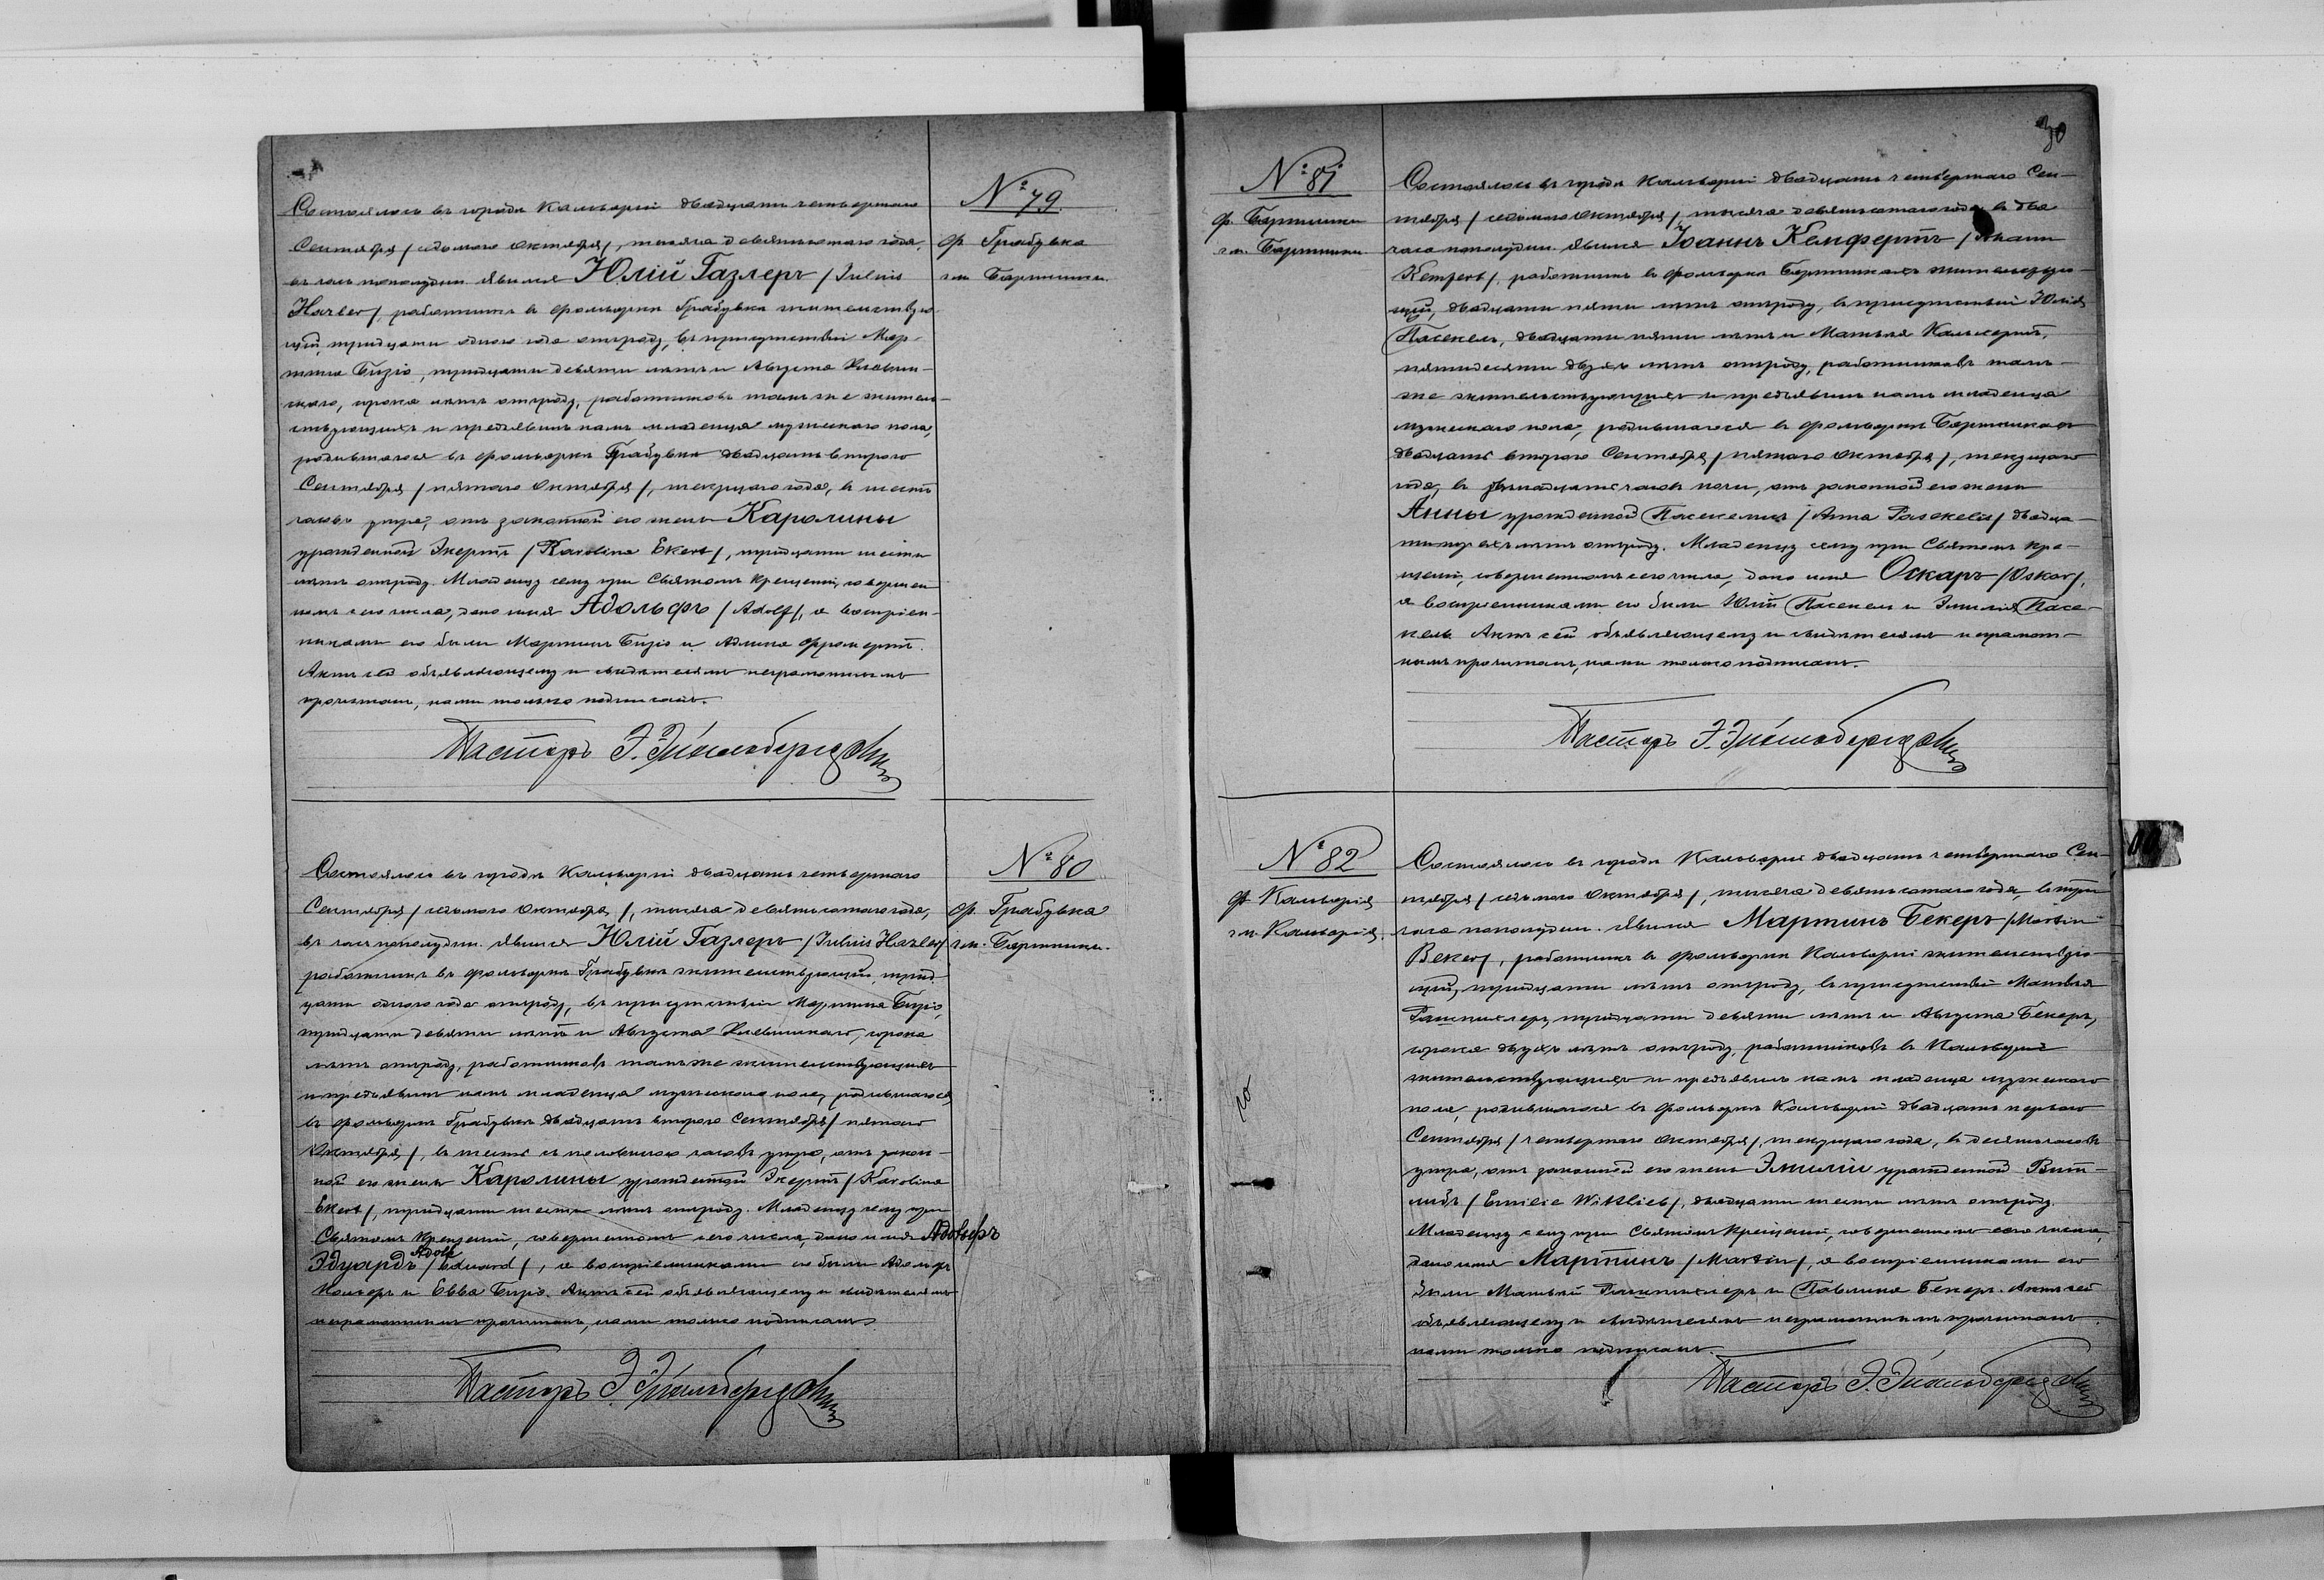 № 79
ф. Грабувка
гм. Бартники.
Состоялось въ городѣ Кальваріи двадцать четвертаго
Сентября /седьмого Октября/, тысяча девятьсотаго года,
въ часъ пополудни. Явился Юлій Газлеръ /Julius
Hazler/, работникъ въ фольваркѣ Грабувка жительствую-
щій, тридцати одного года отъ роду, въ присутствіи Мар-
тина Бизіо, тридцати девяти лѣтъ и Августа
сорока лѣтъ отъ роду, работниковъ тамъ же житель-
ствующихъ и предъявилъ намъ младенца мужескаго пола,
родившагося въ фольваркѣ Грабувкѣ двадцать второго
Сентября /пятаго Октября/, текущаго года, въ шесть
часовъ утра, отъ законной его жены Каролины
урожденной Экертъ /Karoline Ekert/, тридцати шести
лѣтъ отъ роду. Младенцу сему при Святомъ Крещеніи, совершен-
номъ сего числа, дано имя Адольфъ /Adolf/, а воспріем-
никами его были Мартинъ Бизіо и Адлина Фромертъ.
Актъ сей объявляющему и свидѣтелямъ неграмотнымъ
прочитанъ, нами только подписанъ.
Пасторъ Э.
№ 80
ф. Грабувка
гм. Бартники.
Состоялось въ городѣ Кальваріи двадцать четвертаго
Сентября /седьмого Октября/, тысяча девятьсотаго года,
въ часъ пополудни. Явился Юлій Газлеръ /Julius Hazler/
работникъ въ фольваркѣ Грабувкѣ жительствующій, трид-
цати одного года отъ роду, въ присутствіи Мартина Бизіо,
тридцати девяти лѣтъ и Августа сорока
лѣтъ отъ роду, работниковъ тамъ же жительствующихъ
и предъявилъ намъ младенца мужескаго пола, родившагося
въ фольваркѣ Грабувкѣ двадцать второго Сентября /пятаго
Октября/, въ шесть съ половиною часовъ утра, отъ закон-
ной его жены Каролины урожденной Экертъ /Karoline
Ekert/, тридцати шести лѣтъ отъ роду. Младенцу сему при
Святомъ Крещеніи, совершенномъ сего числа, дано имя Адольфъ
Adolf
Эдуардъ /Eduard/, а воспріемниками его были Адольфъ
и Евва Бизіо. Актъ сей объявляющему и свидѣтелямъ
неграмотнымъ прочитанъ, нами только подписанъ.
Пасторъ Э.
30
№ 81
ф. Бартники
гм. Бартники
Состоялось въ городѣ Кальваріи двадцать четвертаго Сен-
тября /седьмого Октября/, тысяча девятьсотаго года, въ два
часа пополудни. Явился Іоаннъ Кемфертъ /Johann
Kempert/, работникъ въ фольваркѣ Бартникахъ жительствую-
щій, двадцати пяти лѣтъ отъ роду, въ присутствіи Юлія
Пасекель, двадцати пяти лѣтъ и Матвѣя
пятидесяти двухъ лѣтъ отъ роду, работниковъ тамъ-
же жительствующихъ и предъявилъ намъ младенца
мужескаго пола, родившагося въ фольваркѣ Бартникахъ
двадцать второго Сентября /пятаго Октября/, текущаго
года, въ двѣнадцать часовъ ночи, отъ законной его жены
Анны урожденной Пасекелисъ /Anna Pasekelis/ двадца-
ти трехъ лѣтъ отъ роду. Младенцу сему при Святомъ Кре-
щеніи, совершенномъ сего числа, дано имя Оскаръ /Oskar/,
а воспріемниками его были Юлій Пасекель и Эмилія Пасе-
кель. Актъ сей объявляющему и свидѣтелямъ неграмот-
нымъ прочитанъ, нами только подписанъ.
Пасторъ Э.
№ 82
ф. Кальварія
гм. Кальварія.
Состоялось въ городѣ Кальваріи двадцать четвертаго Сен-
тября /седьмого Октября/, тысяча девятьсотаго года, въ три
часа пополудни. Явился Мартинъ Бекеръ /Martin
Beker/, работникъ въ фольваркѣ Кальваріи жительствую-
щій, тридцати лѣтъ отъ роду, въ присутствіи Матвѣя
тридцати девяти лѣтъ и Августа Бекеръ,
сорока двухъ лѣтъ отъ роду, работниковъ въ Кальваріи
жительствующихъ и предъявилъ намъ младенца мужескаго
пола, родившагося въ фольваркѣ Кальваріи двадцать перваго
Сентября /четвертаго Октября/, текущаго года, въ десять часовъ
утра, отъ законной его жены Эмиліи урожденной Вит-
либъ /Emilie Wittlieb/, двадцати шести лѣтъ отъ роду.
Младенцу сему при Святомъ Крещеніи, совершенномъ сего числа,
дано имя Мартинъ /Martin/, а воспріемниками его
были Матвѣй и Павлина Бекеръ. Актъ сей
объявляющему и свидѣтелямъ неграмотнымъ прочитанъ
нами только подписанъ.
Пасторъ Э.